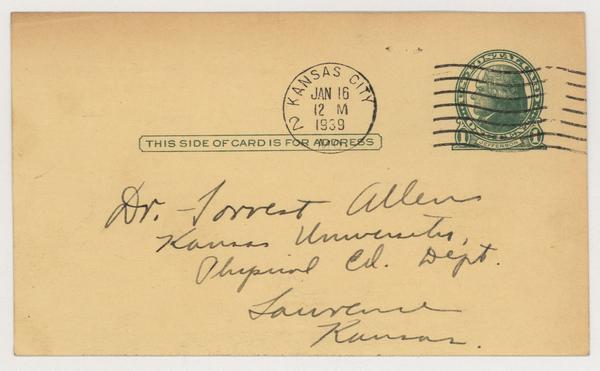 KANSAS CITY
JAN 16
12 M
1939
MO.
2
U.S. POSTAGE
1 ONE CENT 1
JEFFERSON
THIS SIDE OF CARD IS FOR ADDRESS
Dr. Forrest Allen
Kansas University,
Physical Ed. Dept.
Lawrence
Kansas.